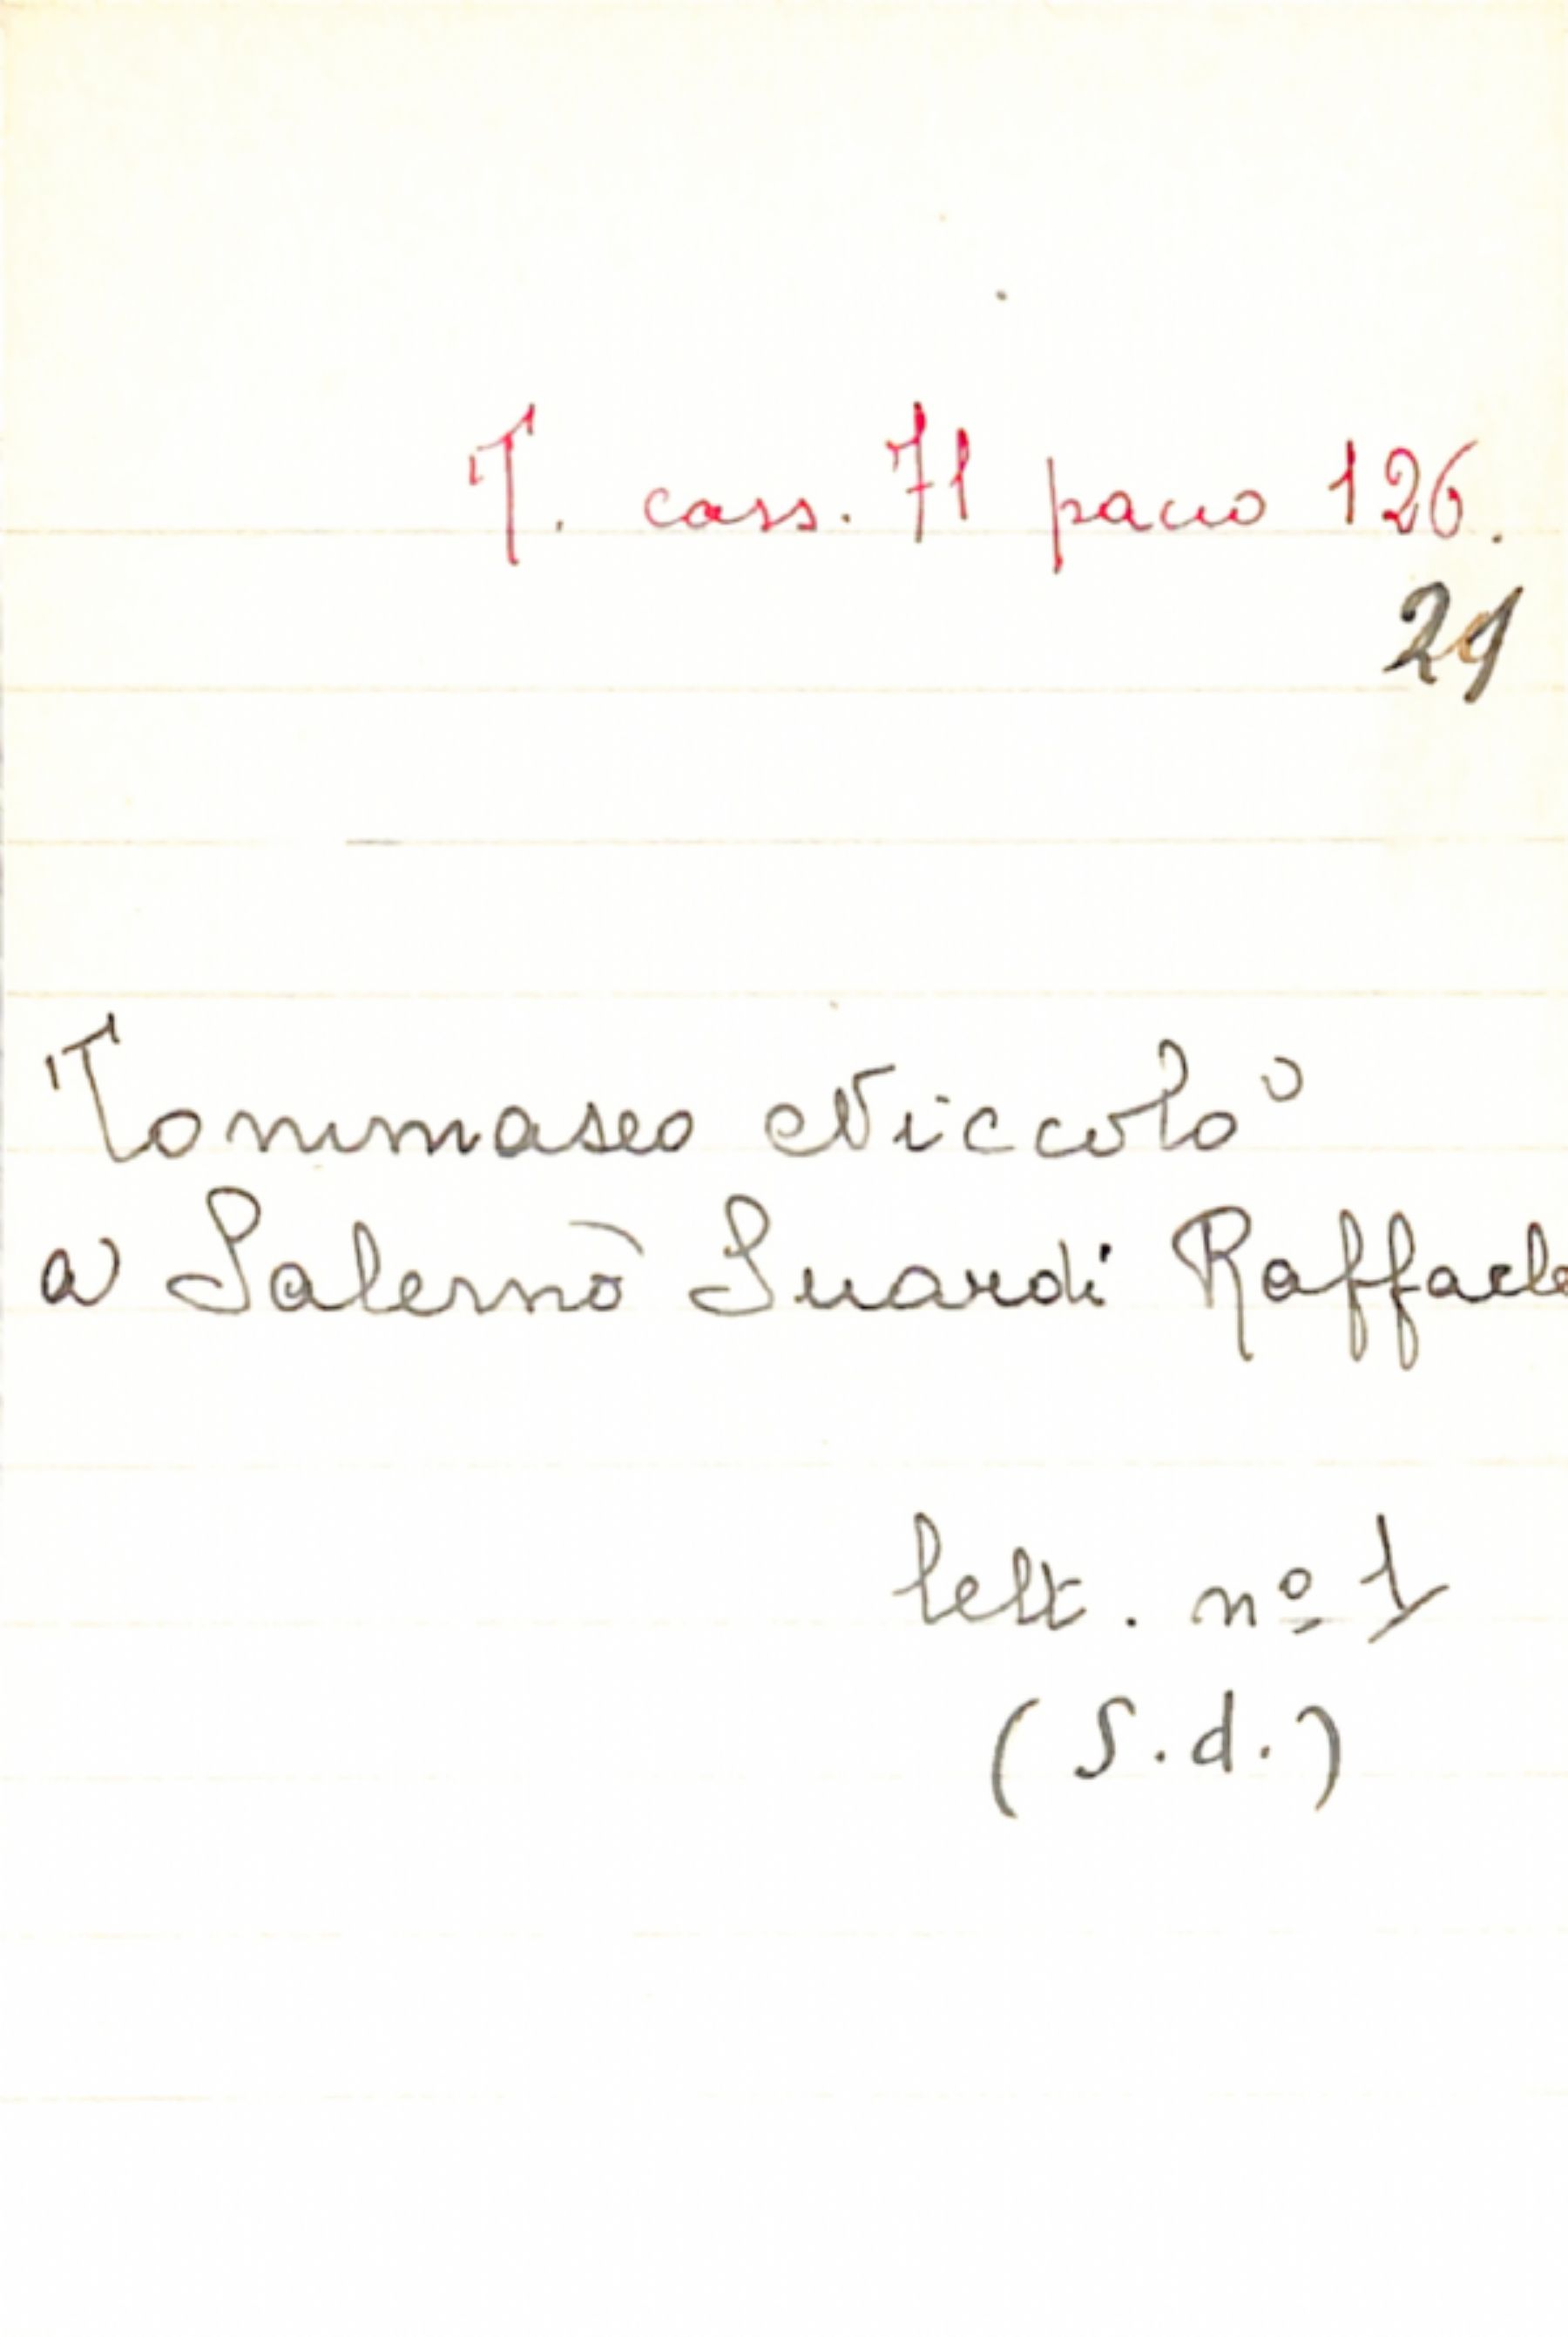 T. cass. 71 pacco 126.
29
Tommaseo Niccolò
a Salernò Suardi Raffaele
lett. nº 1
(S.d.)